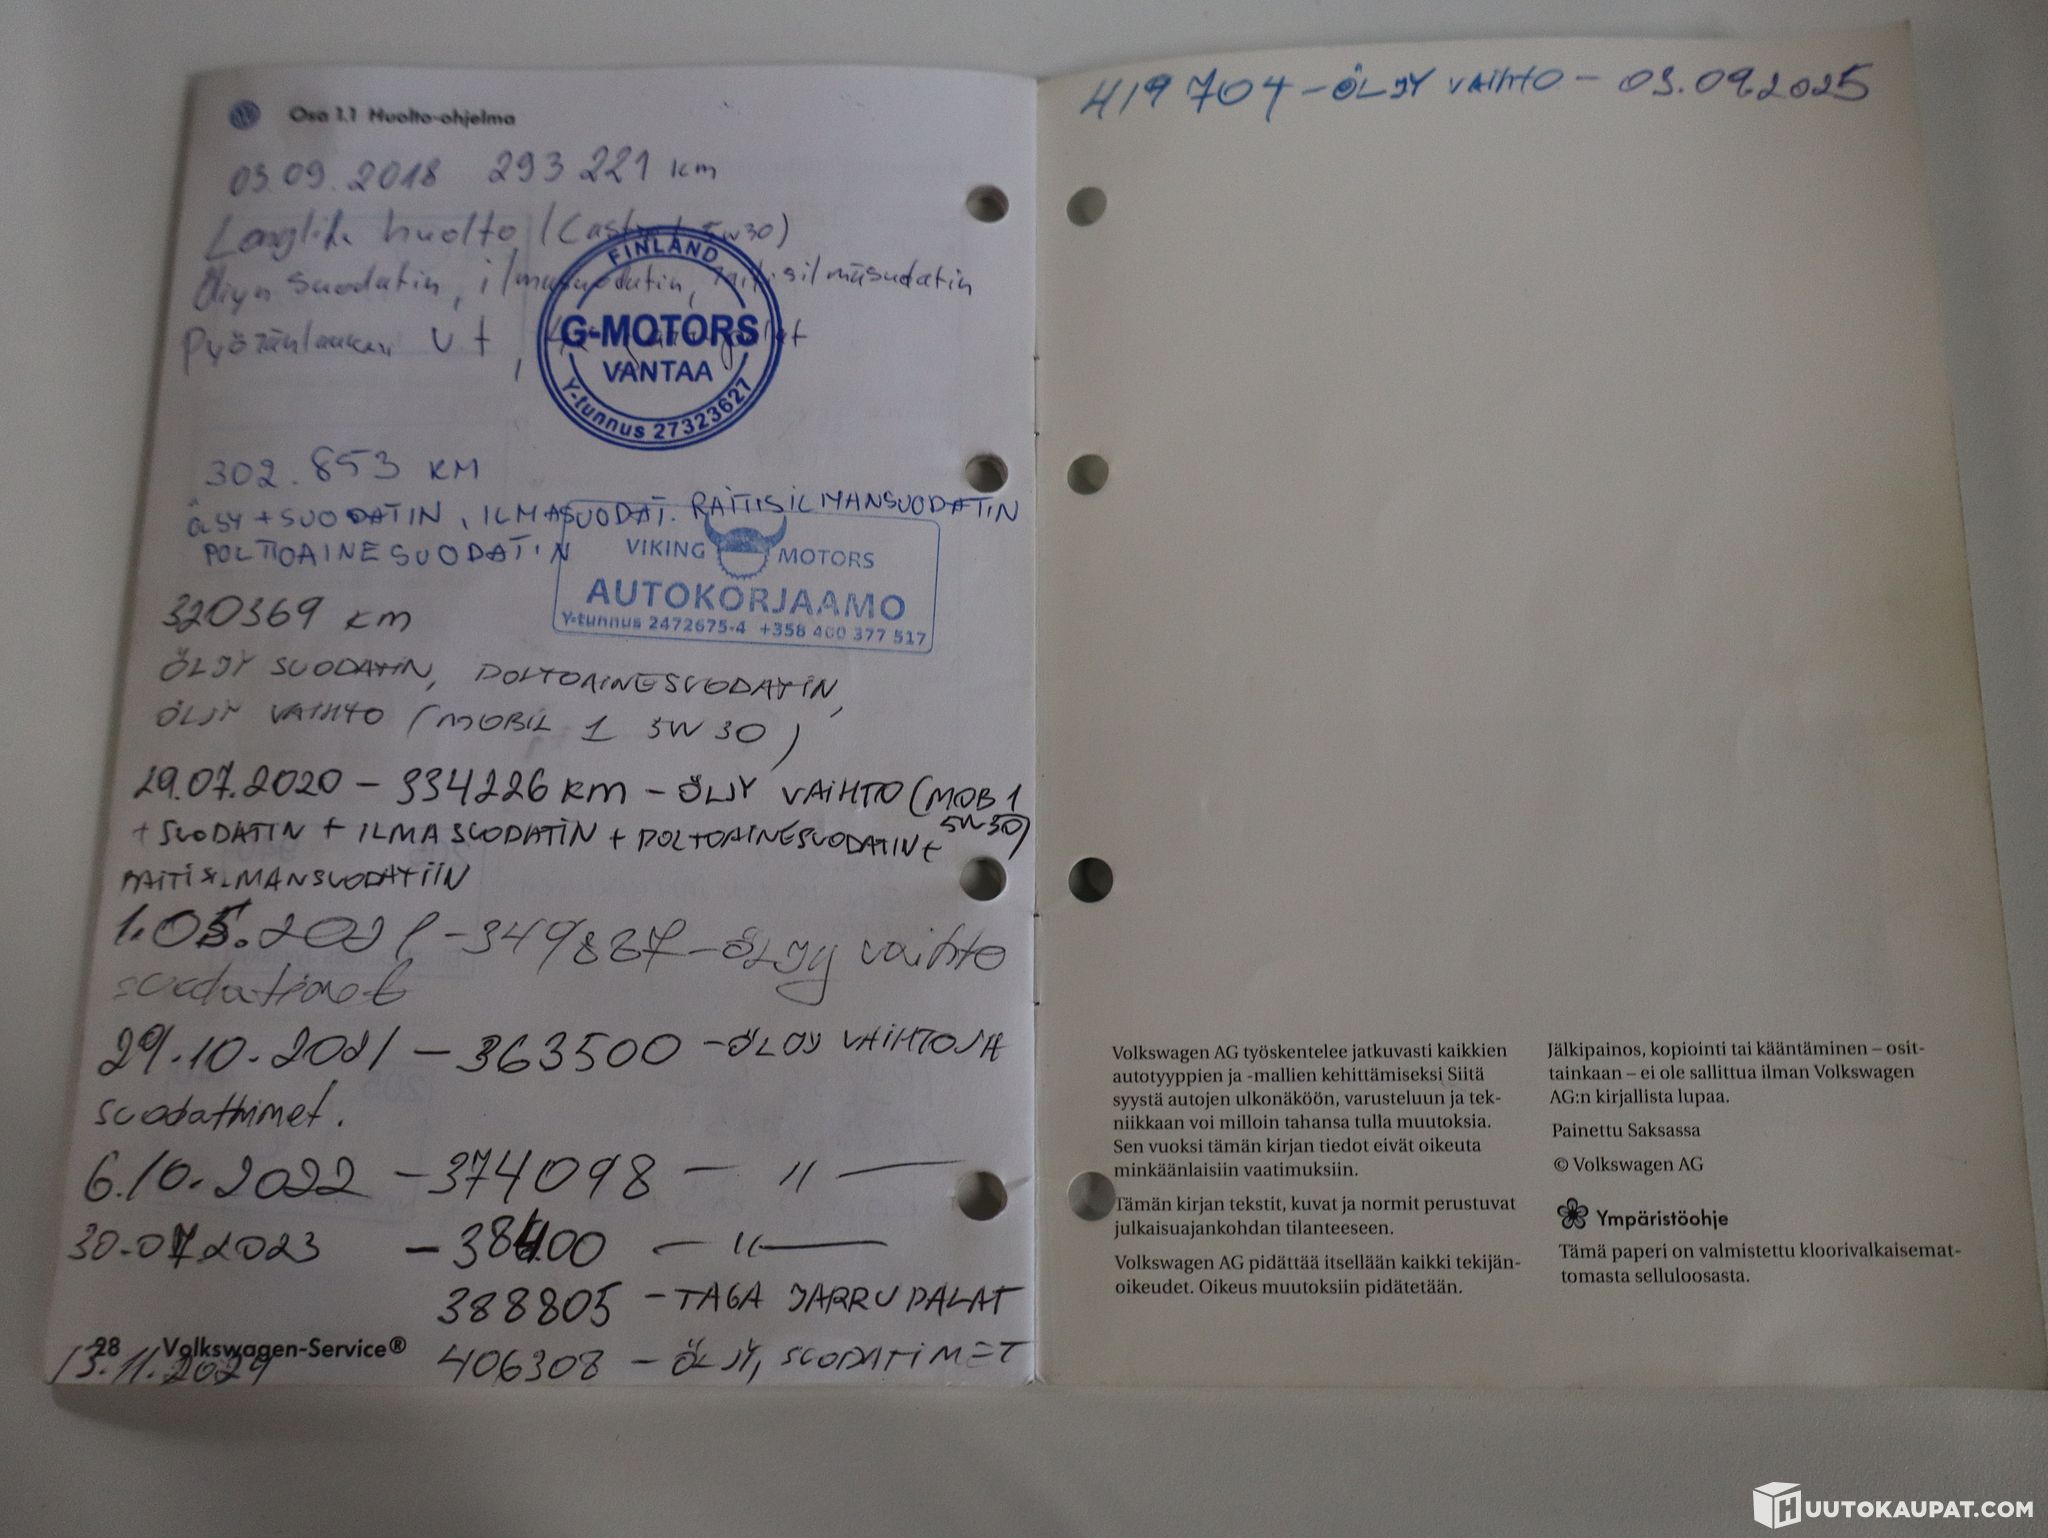 Osa 1.1 Huolto-ohjelma
03.09.2018 293 221 km
huolto (Castrol 5w30)
suodatin, ilmasuodatin,
FINLAND
G-MOTORS
VANTAA
Y-tunnus 27323627
302.853 KM
+ SUODATIN, ILMASUODAT. RAITISILMANSUODATIN
POLTTOAINESUODATIN
VIKING MOTORS
AUTOKORJAAMO
Y-tunnus 2472675-4 +358 400 377 517
320369 km
ÖLJY SUODATIN, POLTOAINESUODATIN,
ÖLJY VAIHTO (MOBIL 1 5W30)
29.07.2020 – 334226 km – ÖLJY VAIHTO (MOB 1
5W30)
+ SUODATIN + ILMASUODATIN + POLTOAINESUODATIN +
1.05.2021 – 349887 – ÖLJY vaihto
suodatimet
29.10.2021 – 363500 – ÖLJY VAIHTO JA
suodattimet.
6.10.2022 – 374098 — 〃 —
30.07.2023 – — 〃 —
388805 – TAGA JARRUPALAT
28 Volkswagen-Service®
13.11.2024 406308 – ÖLJY, SUODATIMET
419 704 – ÖLJY VAIHTO – 03.09.2025
Volkswagen AG työskentelee jatkuvasti kaikkien
autotyyppien ja -mallien kehittämiseksi Siitä
syystä autojen ulkonäköön, varusteluun ja tek-
niikkaan voi milloin tahansa tulla muutoksia.
Sen vuoksi tämän kirjan tiedot eivät oikeuta
minkäänlaisiin vaatimuksiin.
Tämän kirjan tekstit, kuvat ja normit perustuvat
julkaisuajankohdan tilanteeseen.
Volkswagen AG pidättää itsellään kaikki tekijän-
oikeudet. Oikeus muutoksiin pidätetään.
Jälkipainos, kopiointi tai kääntäminen – osit-
tainkaan – ei ole sallittua ilman Volkswagen
AG:n kirjallista lupaa.
Painettu Saksassa
© Volkswagen AG
Ympäristöohje
Tämä paperi on valmistettu kloorivalkaisemat-
tomasta selluloosasta.
HUUTOKAUPAT.COM